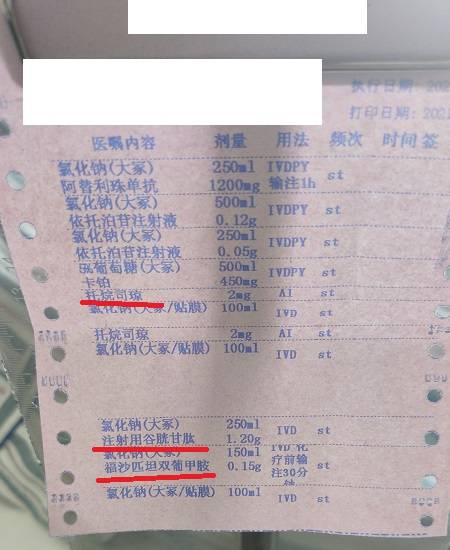 执行日期: 202
打印日期: 202
医嘱内容 剂量 用法 频次 时间 签
氯化钠(大冢) 250ml IVDPY st
阿替利珠单抗 1200mg 输注1h
氯化钠(大冢) 500ml IVDPY st
依托泊苷注射液 0.12g
氯化钠(大冢) 250ml IVDPY st
依托泊苷注射液 0.05g
葡萄糖(大冢) 500ml IVDPY st
卡铂 450mg
托烷司琼 2mg AI st
氯化钠(大冢/贴膜) 100ml IVD
托烷司琼 2mg AI st
氯化钠(大冢/贴膜) 100ml IVD st
氯化钠(大冢) 250ml IVD st
注射用谷胱甘肽 1.20g
氯化钠(大冢) 150ml IVD 化
福沙匹坦双葡甲胺 0.15g 疗前输注30分 st
氯化钠(大冢/贴膜) 100ml IVD st